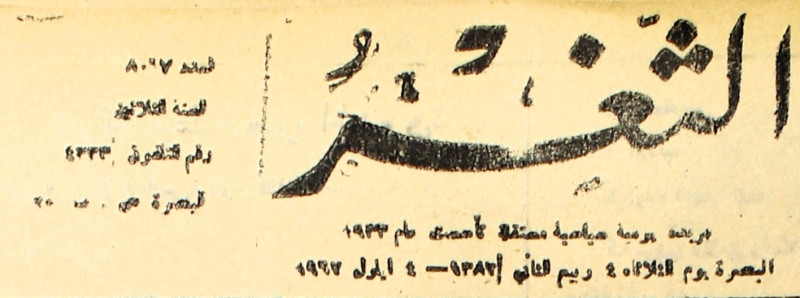 الثَّغْرُ
جريدة يومية سياسية مستقلة تأسست عام ١٩٣٣
البصرة يوم الثلاثاء ٤ ربيع الثاني ١٣٨٢ — ٤ ايلول ١٩٦٢
العدد
السنة الثلاثون
رقم التلفون
البصرة ص . ب ٢٠